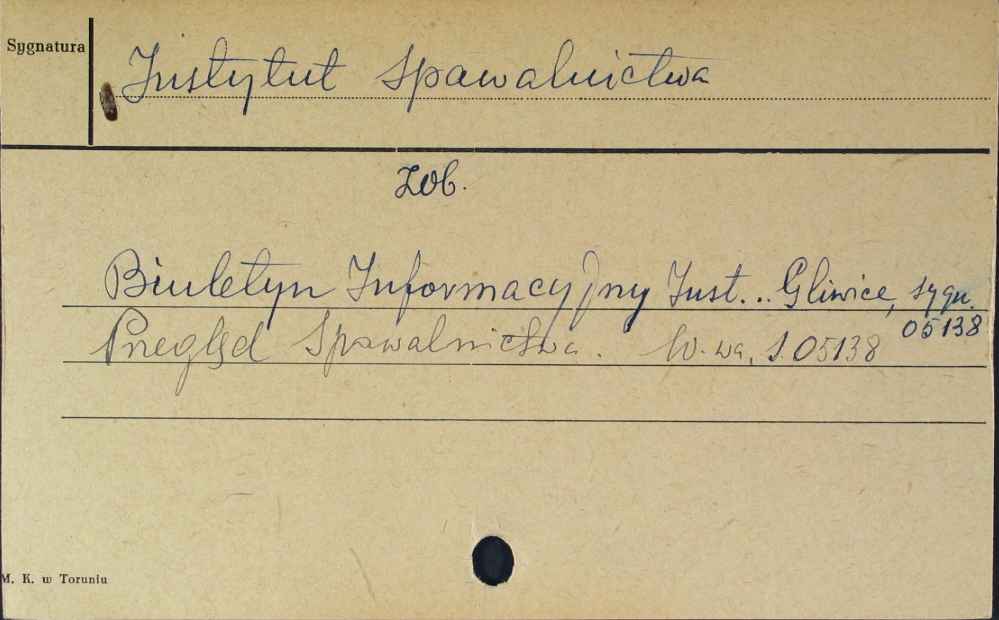 Sygnatura
Instytut Spawalnictwa
Zob.
Biuletyn Informacyjny Inst... Gliwice, sygn.
05138
Przegląd Spawalnictwa. W-wa, s. 05138
M. K. w Toruniu